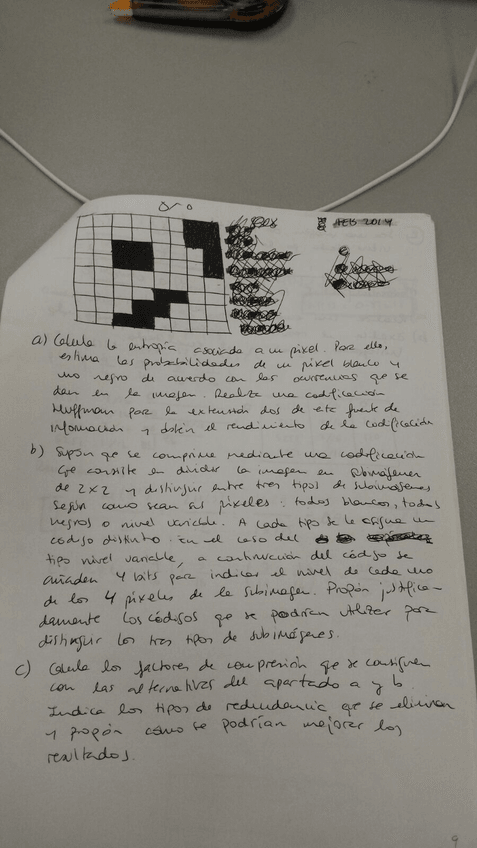 FEB 2014
a) Calcula la entropía asociada a un píxel. Por ello,
estima las probabilidades de un píxel blanco y
uno negro de acuerdo con las ocurrencias que se
dan en la imagen. Realiza una codificación
Huffman por la extensión dos de esta fuente de
información y obtén el rendimiento de la codificación
b) Supón que se comprime mediante una codificación
que consiste en dividir la imagen en subimágenes
de 2x2 y distinguir entre tres tipos de subimágenes
según como sean sus píxeles: todos blancos, todos
negros o nivel variable. A cada tipo se le asigna un
código distinto. En el caso del
tipo nivel variable, a continuación del código se
añaden 4 bits para indicar el nivel de cada uno
de los 4 píxeles de la subimagen. Propón justifica-
damente los códigos que se podrían utilizar para
distinguir los tres tipos de subimágenes.
c) Calcula los factores de compresión que se consiguen
con las alternativas del apartado a y b.
Indica los tipos de redundancia que se eliminan
y propón cómo se podrían mejorar los
resultados.
9